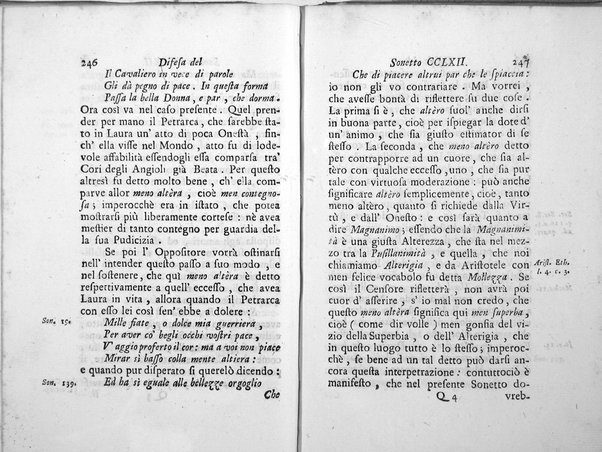 246 Difesa del
Il Cavaliero in vece di parole
Gli dà pegno di pace. In questa forma
Passa la bella Donna, e par, che dorma.
Ora così va nel caso presente. Quel pren-
der per mano il Petrarca, che sarebbe sta-
to in Laura un' atto di poca Onestà, sin-
ch' ella visse nel Mondo, atto fu di lode-
vole affabilità essendogli essa comparsa tra'
Cori degli Angioli già Beata. Per questo
altresì fu detto molto bene, ch' ella com-
parve allor meno altèra, cioè men contegno-
sa; imperocchè era in istato, che potea
mostrarsi più liberamente cortese: nè avea
mestier di tanto contegno per guardia del-
la sua Pudicizia.
Se poi l' Oppositore vorrà ostinarsi
nell' intender questo passo a suo modo, e
nel sostenere, che quì meno altèra è detto
respettivamente a quell' eccesso, che avea
Laura in vita, allora quando il Petrarca
con esso lei così sen' ebbe a dolere:
Son. 19. Mille fiate, o dolce mia guerriera,
Per aver co' begli occhi vostri pace,
V' aggio proferto il cor: ma a voi non piace
Mirar sì basso colla mente altiera:
e quando pur disperato si querelò dicendo:
Son. 139. Ed ha sì eguale alle bellezze orgoglio
Che
Sonetto CCLXII. 247
Che di piacere altrui par che le spiaccia:
io non gli vo contrariare. Ma vorrei,
che avesse bontà di riflettere su due cose.
La prima si è, che altèro suol' anche dirsi
in buona parte, cioè per ispiegar la dote d'
un' animo, che sia giusto estimator di se
stesso. La seconda, che meno altèro detto
per contrapporre ad un cuore, che sia al-
tèro con qualche eccesso, uno, che sia pur
tale con virtuosa moderazione: può anche
significare altèro semplicemente, cioè, tanto
meno altèro, quanto si richiede dalla Vir-
tù, e dall' Onesto: e così sarà quanto a
dire Magnanimo; essendo che la Magnanimi-
tà è una giusta Alterezza, che sta nel mez-
zo tra la Pusillanimità, e quella, che noi
chiamiamo Alterigia, e da Aristotele con Arist. Eth.
men felice vocabolo fu detta Mollezza. Se l. 4. c. 3.
così il Censore rifletterà, non avrà poi
cuor d' asserire, s' io mal non credo, che
questo meno altèra significa quì men superba,
cioè (come dir volle) men gonfia del vi-
zio della Superbia, o dell' Alterigia, che
in questo luogo tutto è lo stesso; imperoc-
chè, se bene ad un tal detto può darsi an-
cora questa interpetrazione: contuttociò è
manifesto, che nel presente Sonetto do-
Q 4 vreb-